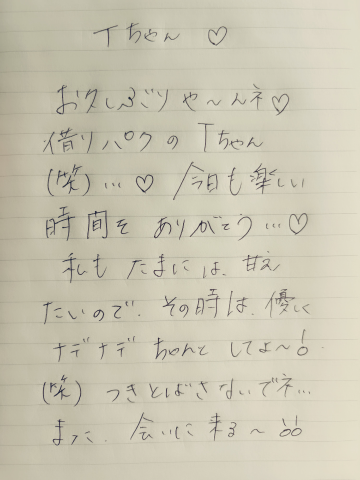 Tちゃん ♡
お久しぶりや〜んネ♡
借りパクのTちゃん
(笑)…♡ 今日も楽しい
時間を ありがとう…♡
私も たまには、甘え
たいので、その時は、優しく
ナデナデ ちゃんと してよ〜!
(笑) つきとばさないでネ…
また、会いに来る〜!!